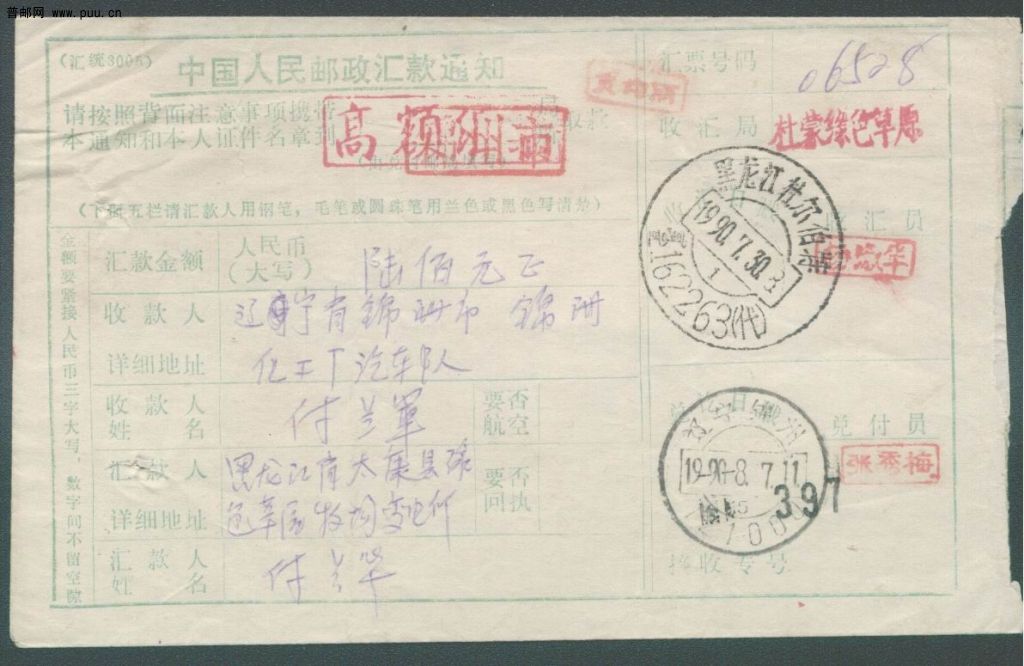 普邮网 www.puu.cn
(汇统3005)
中国人民邮政汇款通知
请按照背面注意事项携带
本通知和本人证件名章到 局 取款
高额
(下面五栏请汇款人用钢笔，毛笔或圆珠笔用兰色或黑色写清楚)
金额要紧接人民币三字大写，数字间不留空隙
汇款金额 人民币(大写) 陆佰元正
收款人详细地址 辽宁省锦州市 锦州
化工厂汽车队
收款人姓名 付兰军
要否航空
汇款人详细地址 黑龙江省太康县绿
色草原牧场变电所
要否回执
汇款人姓名 付兰华
汇票号码 06528
收汇局 杜蒙绿色草原
黑龙江杜尔伯特
1990.7.30.8
1
162263(代)
收汇员
兑付日戳
辽宁锦州
1990-8.7.11
397
兑付员
张秀梅
接收专号